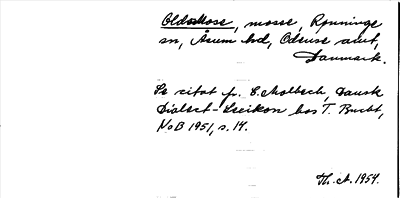 Oldmose, mosse, Rønninge
sn, Åsum hd, Odense amt,
Danmark.
Se citat fr. C. Molbech, Dansk
Dialect-Lexikon hos T. Bucht,
NoB 1951, s. 14.
Th. A. 1954.